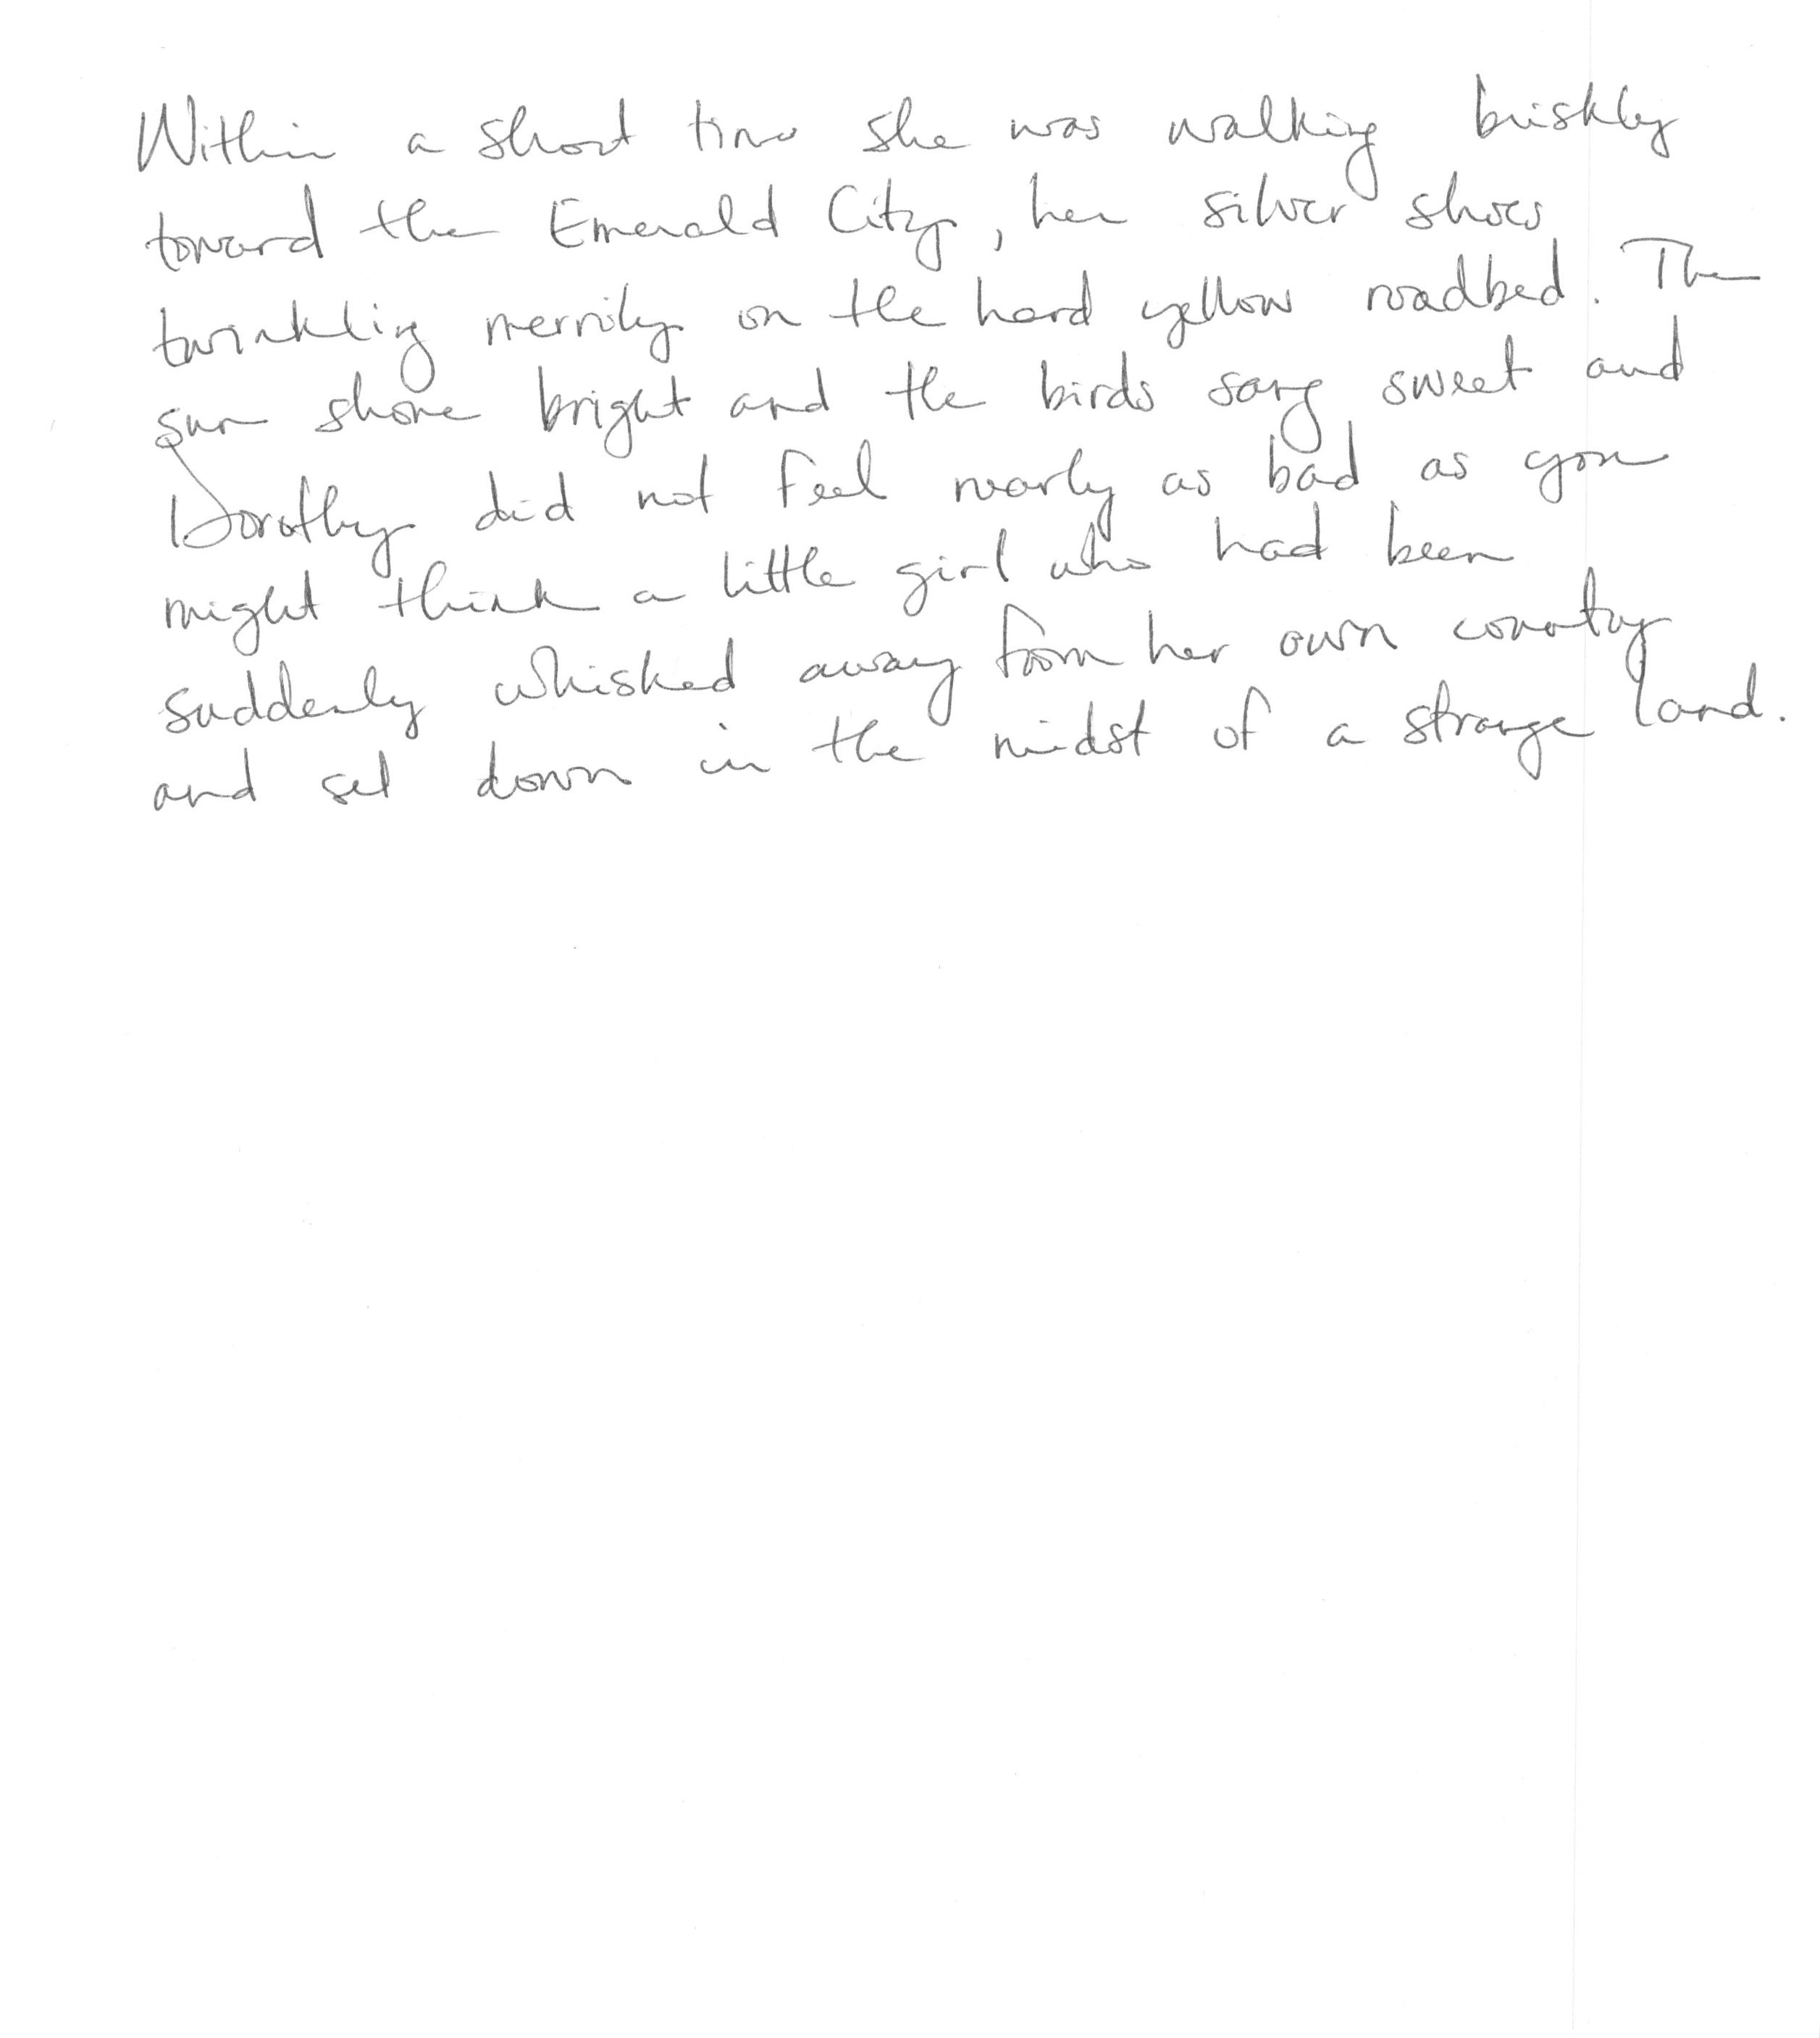 Within a short time she was walking briskly
toward the Emerald City, her silver shoes
twinkling merrily on the hard yellow roadbed. The
sun shone bright and the birds sang sweet and
Dorothy did not feel nearly as bad as you
might think a little girl who had been
suddenly whisked away from her own country
and set down in the midst of a strange land.